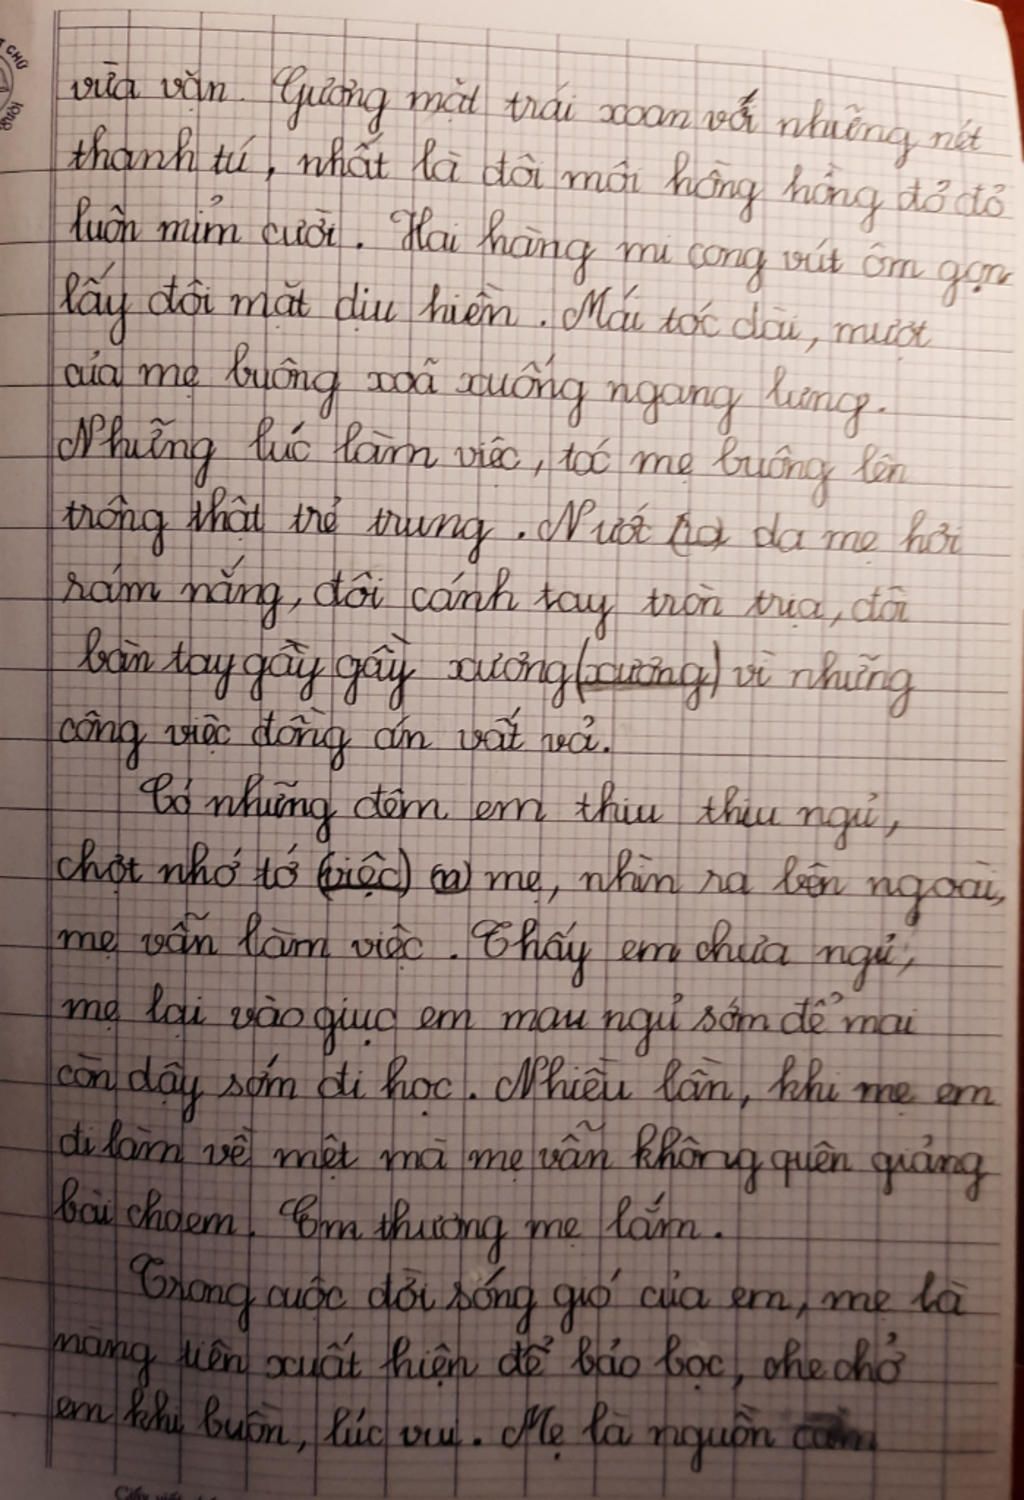 vừa vặn. Gương mặt trái xoan với những nét
thanh tú, nhất là đôi môi hồng hồng đỏ đỏ
luôn mỉm cười. Hai hàng mi cong vút ôm gọn
lấy đôi mắt dịu hiền. Mái tóc dài, mượt
của mẹ buông xoã xuống ngang lưng.
Những lúc làm việc, tóc mẹ buông lên
trông thật trẻ trung. Nướt da mẹ hơi
rám nắng, đôi cánh tay tròn trịa, đôi
bàn tay gầy gầy xương (xương) vì những
công việc đồng án vất vả.
Có những đêm em thiu thiu ngủ,
chợt nhớ tớ (việc) mẹ, nhìn ra bên ngoài,
mẹ vẫn làm việc. Thấy em chưa ngủ,
mẹ lại vào giục em mau ngủ sớm để mai
còn dậy sớm đi học. Nhiều lần, khi mẹ em
đi làm về mệt mà mẹ vẫn không quên giảng
bài cho em. Em thương mẹ lắm.
Trong cuộc đời sóng gió của em, mẹ là
nàng tiên xuất hiện để bảo bọc, che chở
em khi buồn, lúc vui. Mẹ là nguồn